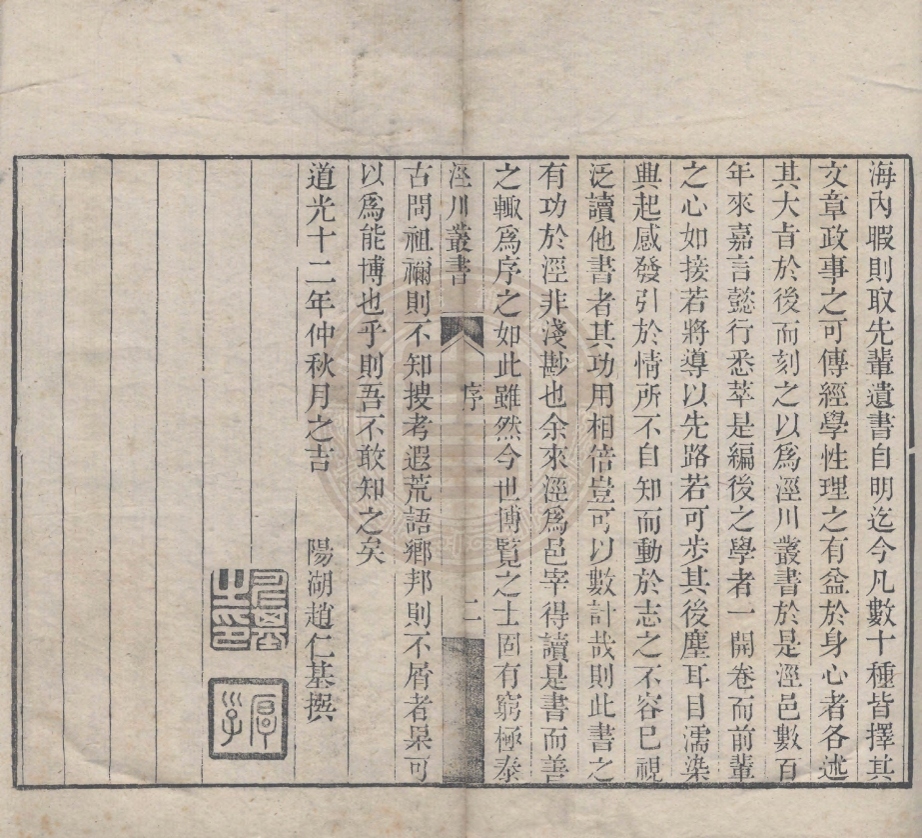 海內暇則取先輩遺書自明迄今凡數十種皆擇其
文章政事之可傳經學性理之有益於身心者各述
其大旨於後而刻之以爲涇川叢書於是涇邑數百
年來嘉言懿行悉萃是編後之學者一開卷而前輩
之心如接若將導以先路若可步其後塵耳目濡染
興起感發引於情所不自知而動於志之不容已視
泛讀他書者其功用相倍豈可以數計哉則此書之
有功於涇非淺尠也余來涇爲邑宰得讀是書而善
之輙爲序之如此雖然今世博覽之士固有窮極泰
涇川叢書 序 二
古問祖禰則不知搜考遐荒語鄉邦則不屑者杲可
以爲能博也乎則吾不敢知之矣
道光十二年仲秋月之吉 陽湖趙仁基撰